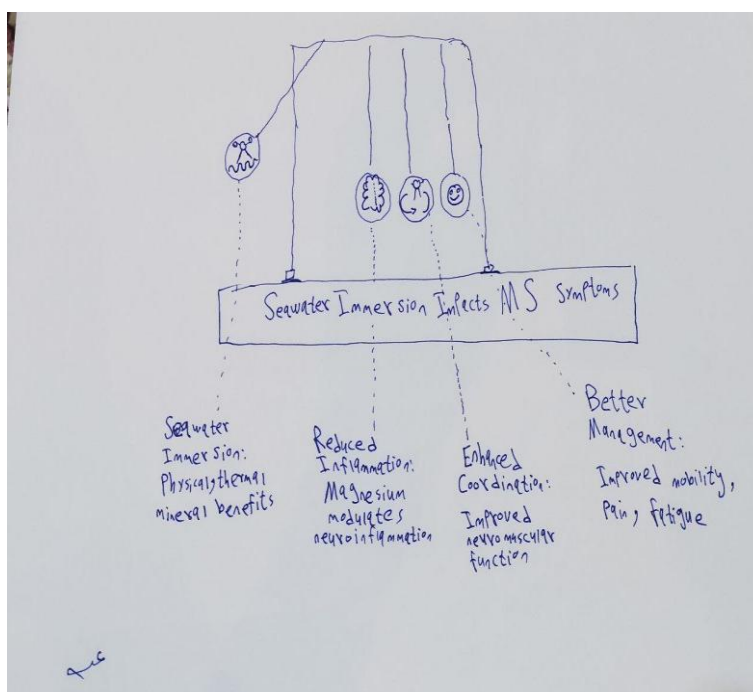 Seawater Immersion Impacts MS Symptoms
Seawater
Immersion:
Physical, thermal
mineral benefits
Reduced
Inflammation:
Magnesium
modulates
neuroinflammation
Enhanced
Coordination:
Improved
neuromuscular
function
Better
Management:
Improved mobility,
Pain, fatigue